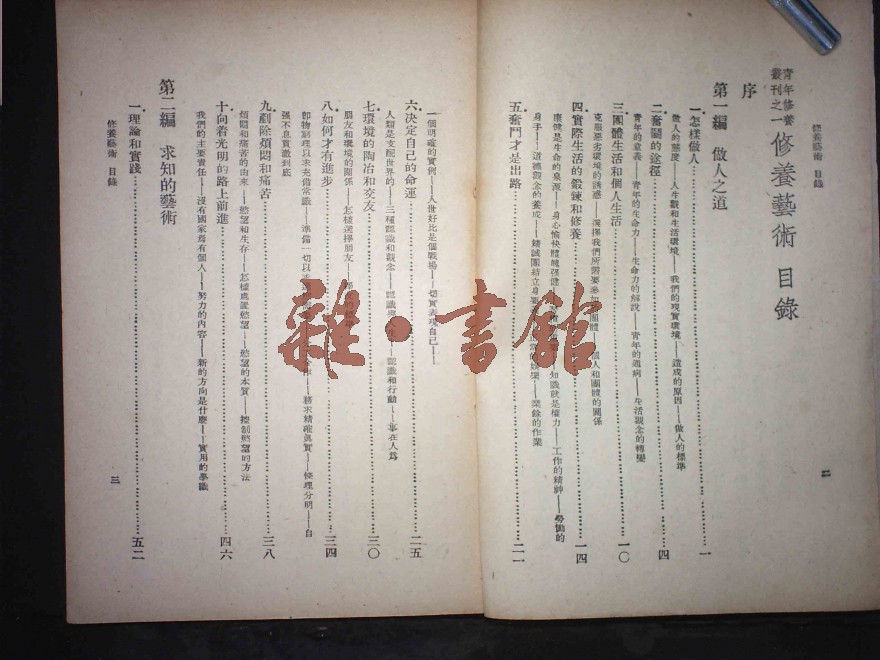 修養藝術 目錄
二
青年修養
叢刊之一
修養藝術 目錄
序
第一編 做人之道
一.怎樣做人……一
做人的態度——人生觀和生活環境——我們的現實環境——造成的原因——做人的標準
二.奮鬭的途徑……四
青年的意義——青年的生命力——生命力的解說——青年的通病——生活觀念的轉變
三.團體生活和個人生活……一〇
克服惡劣環境的誘惑——選擇我們所需要參加的團體——個人和團體的關係
四.實際生活的鍛鍊和修養……一四
康健是生命的泉源——身心愉快體魄強健——知識就是權力——工作的精神——勞働的
身手——道德觀念的養成——精誠團結立身要——業餘的作業
五.奮鬥才是出路……二一
一個明確的實例——人世好比是個戰場——切實表現自己——
六.決定自己的命運……二五
人類是支配世界的——三種認識和觀念——認識——認識和行動——事在人為
七.環境的陶冶和交友……三〇
朋友和環境的關係——怎樣選擇朋友——
八.如何才有進步……三四
即物窮理以求充備常識——準備一切以——務求精確真實——條理分明——自
強不息貫澈到底
九.剷除煩悶和痛苦……三八
煩悶和痛苦的由來——慾望和生存——怎樣處置慾望——慾望的本質——控制慾望的方法
十.向着光明的路上前進……四六
我們的主要責任——沒有國家焉有個人——努力的內容——新的方向是什麼——實用的學識
第二編 求知的藝術
一.理論和實踐……五二
修養藝術 目錄
三
雜·書館